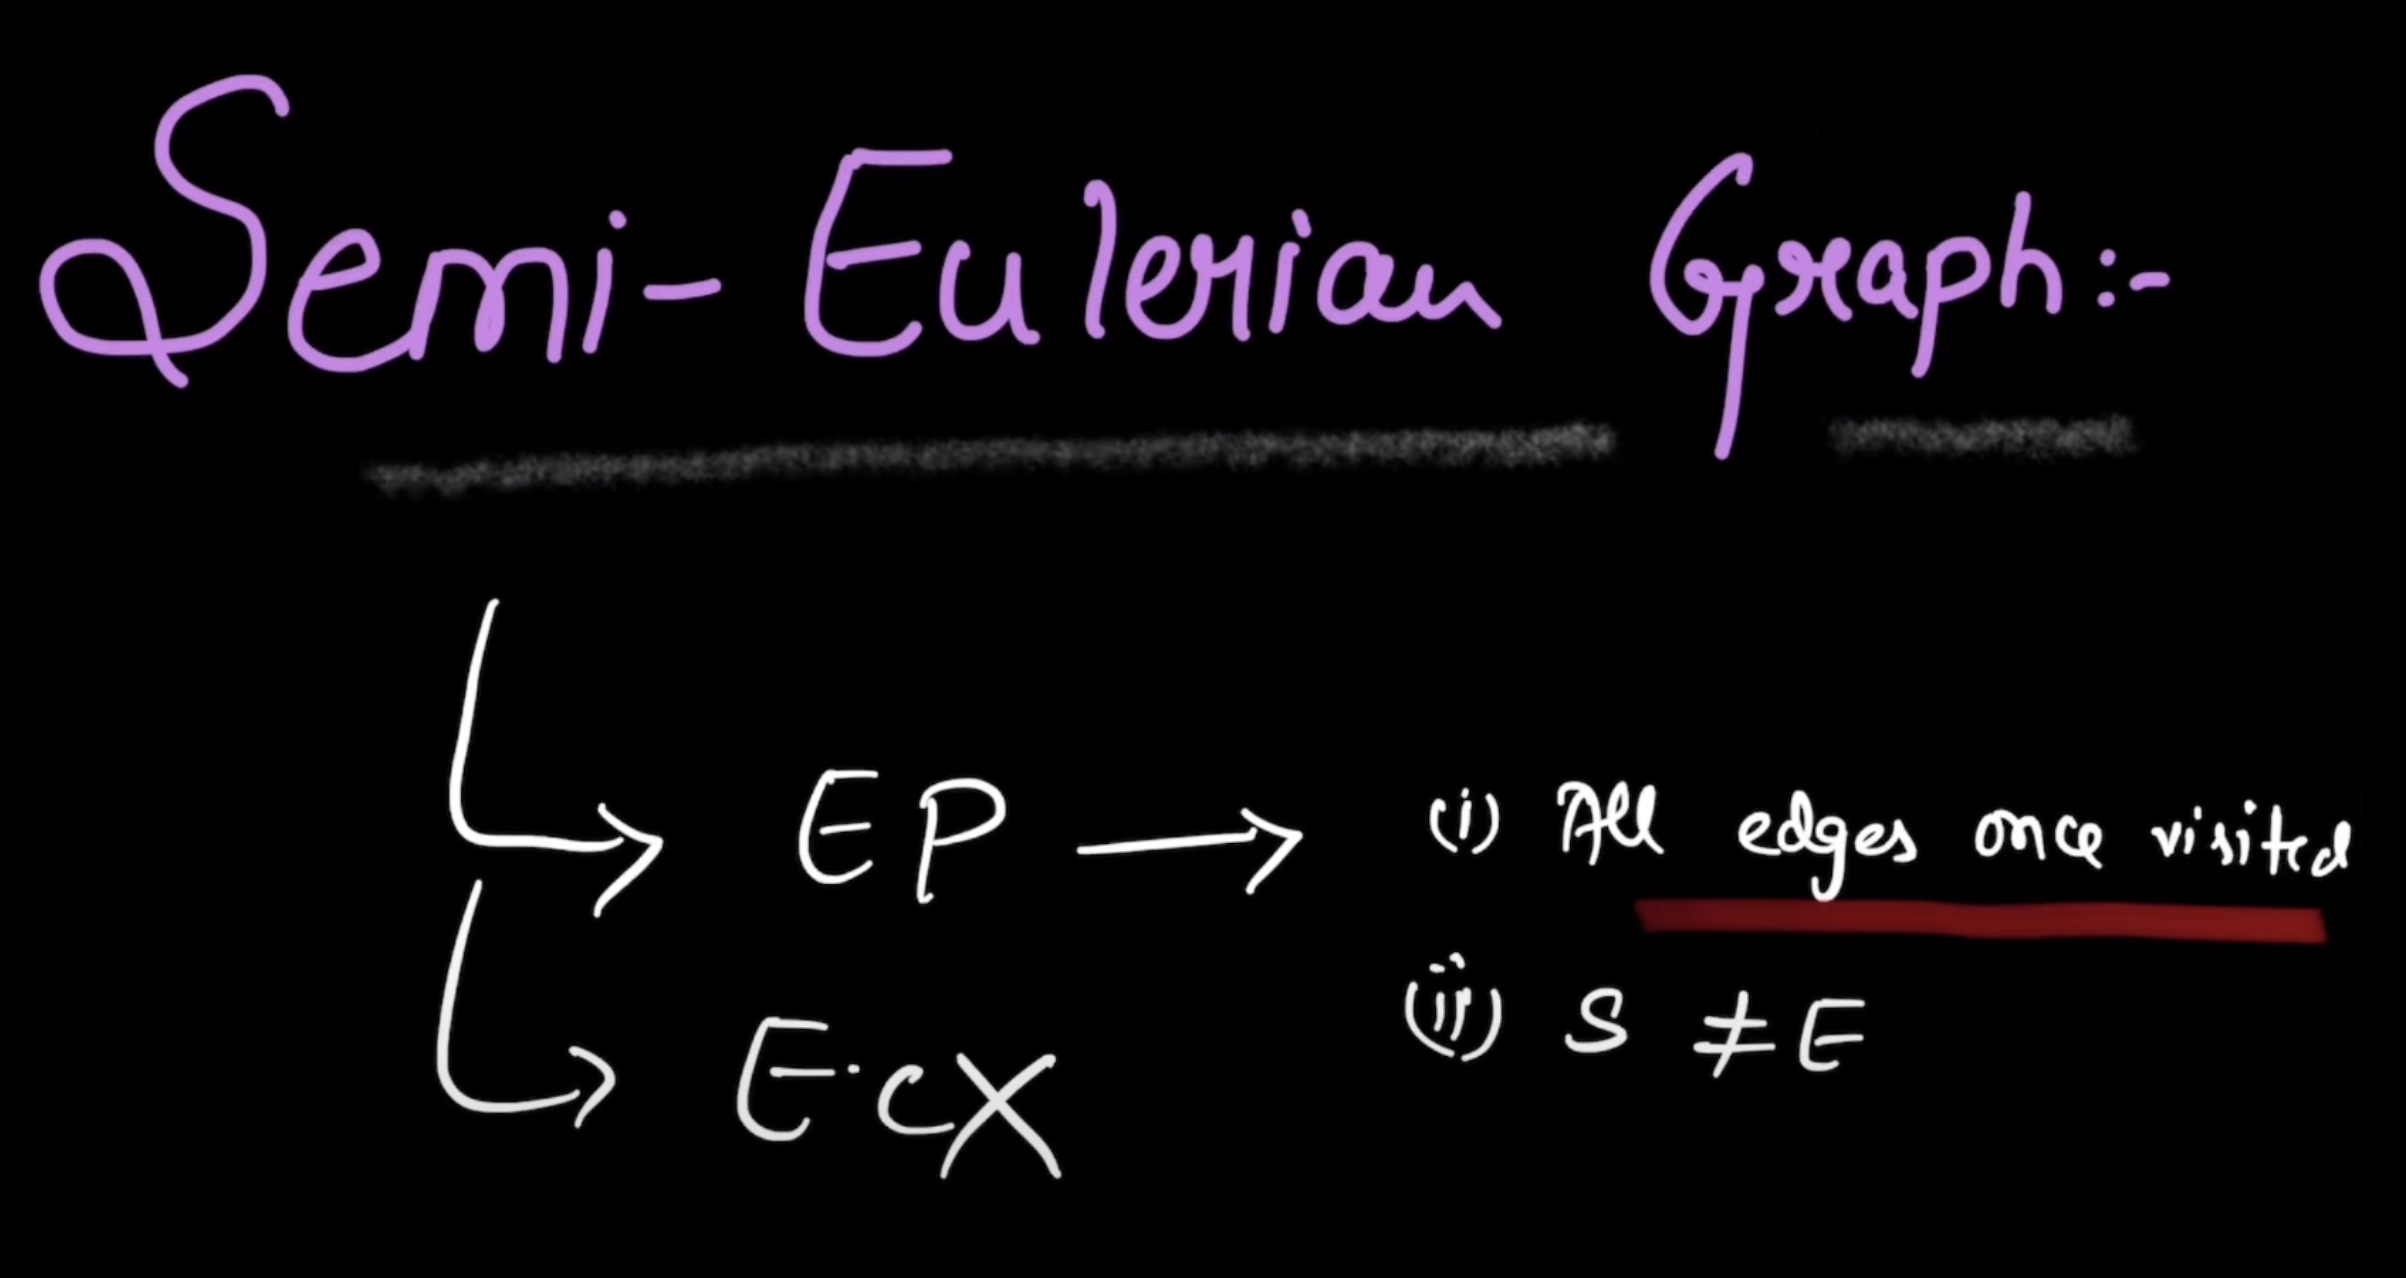 Semi-Eulerian Graph:-
EP → (i) All edges once visited
(ii) S ≠ E
E.C X